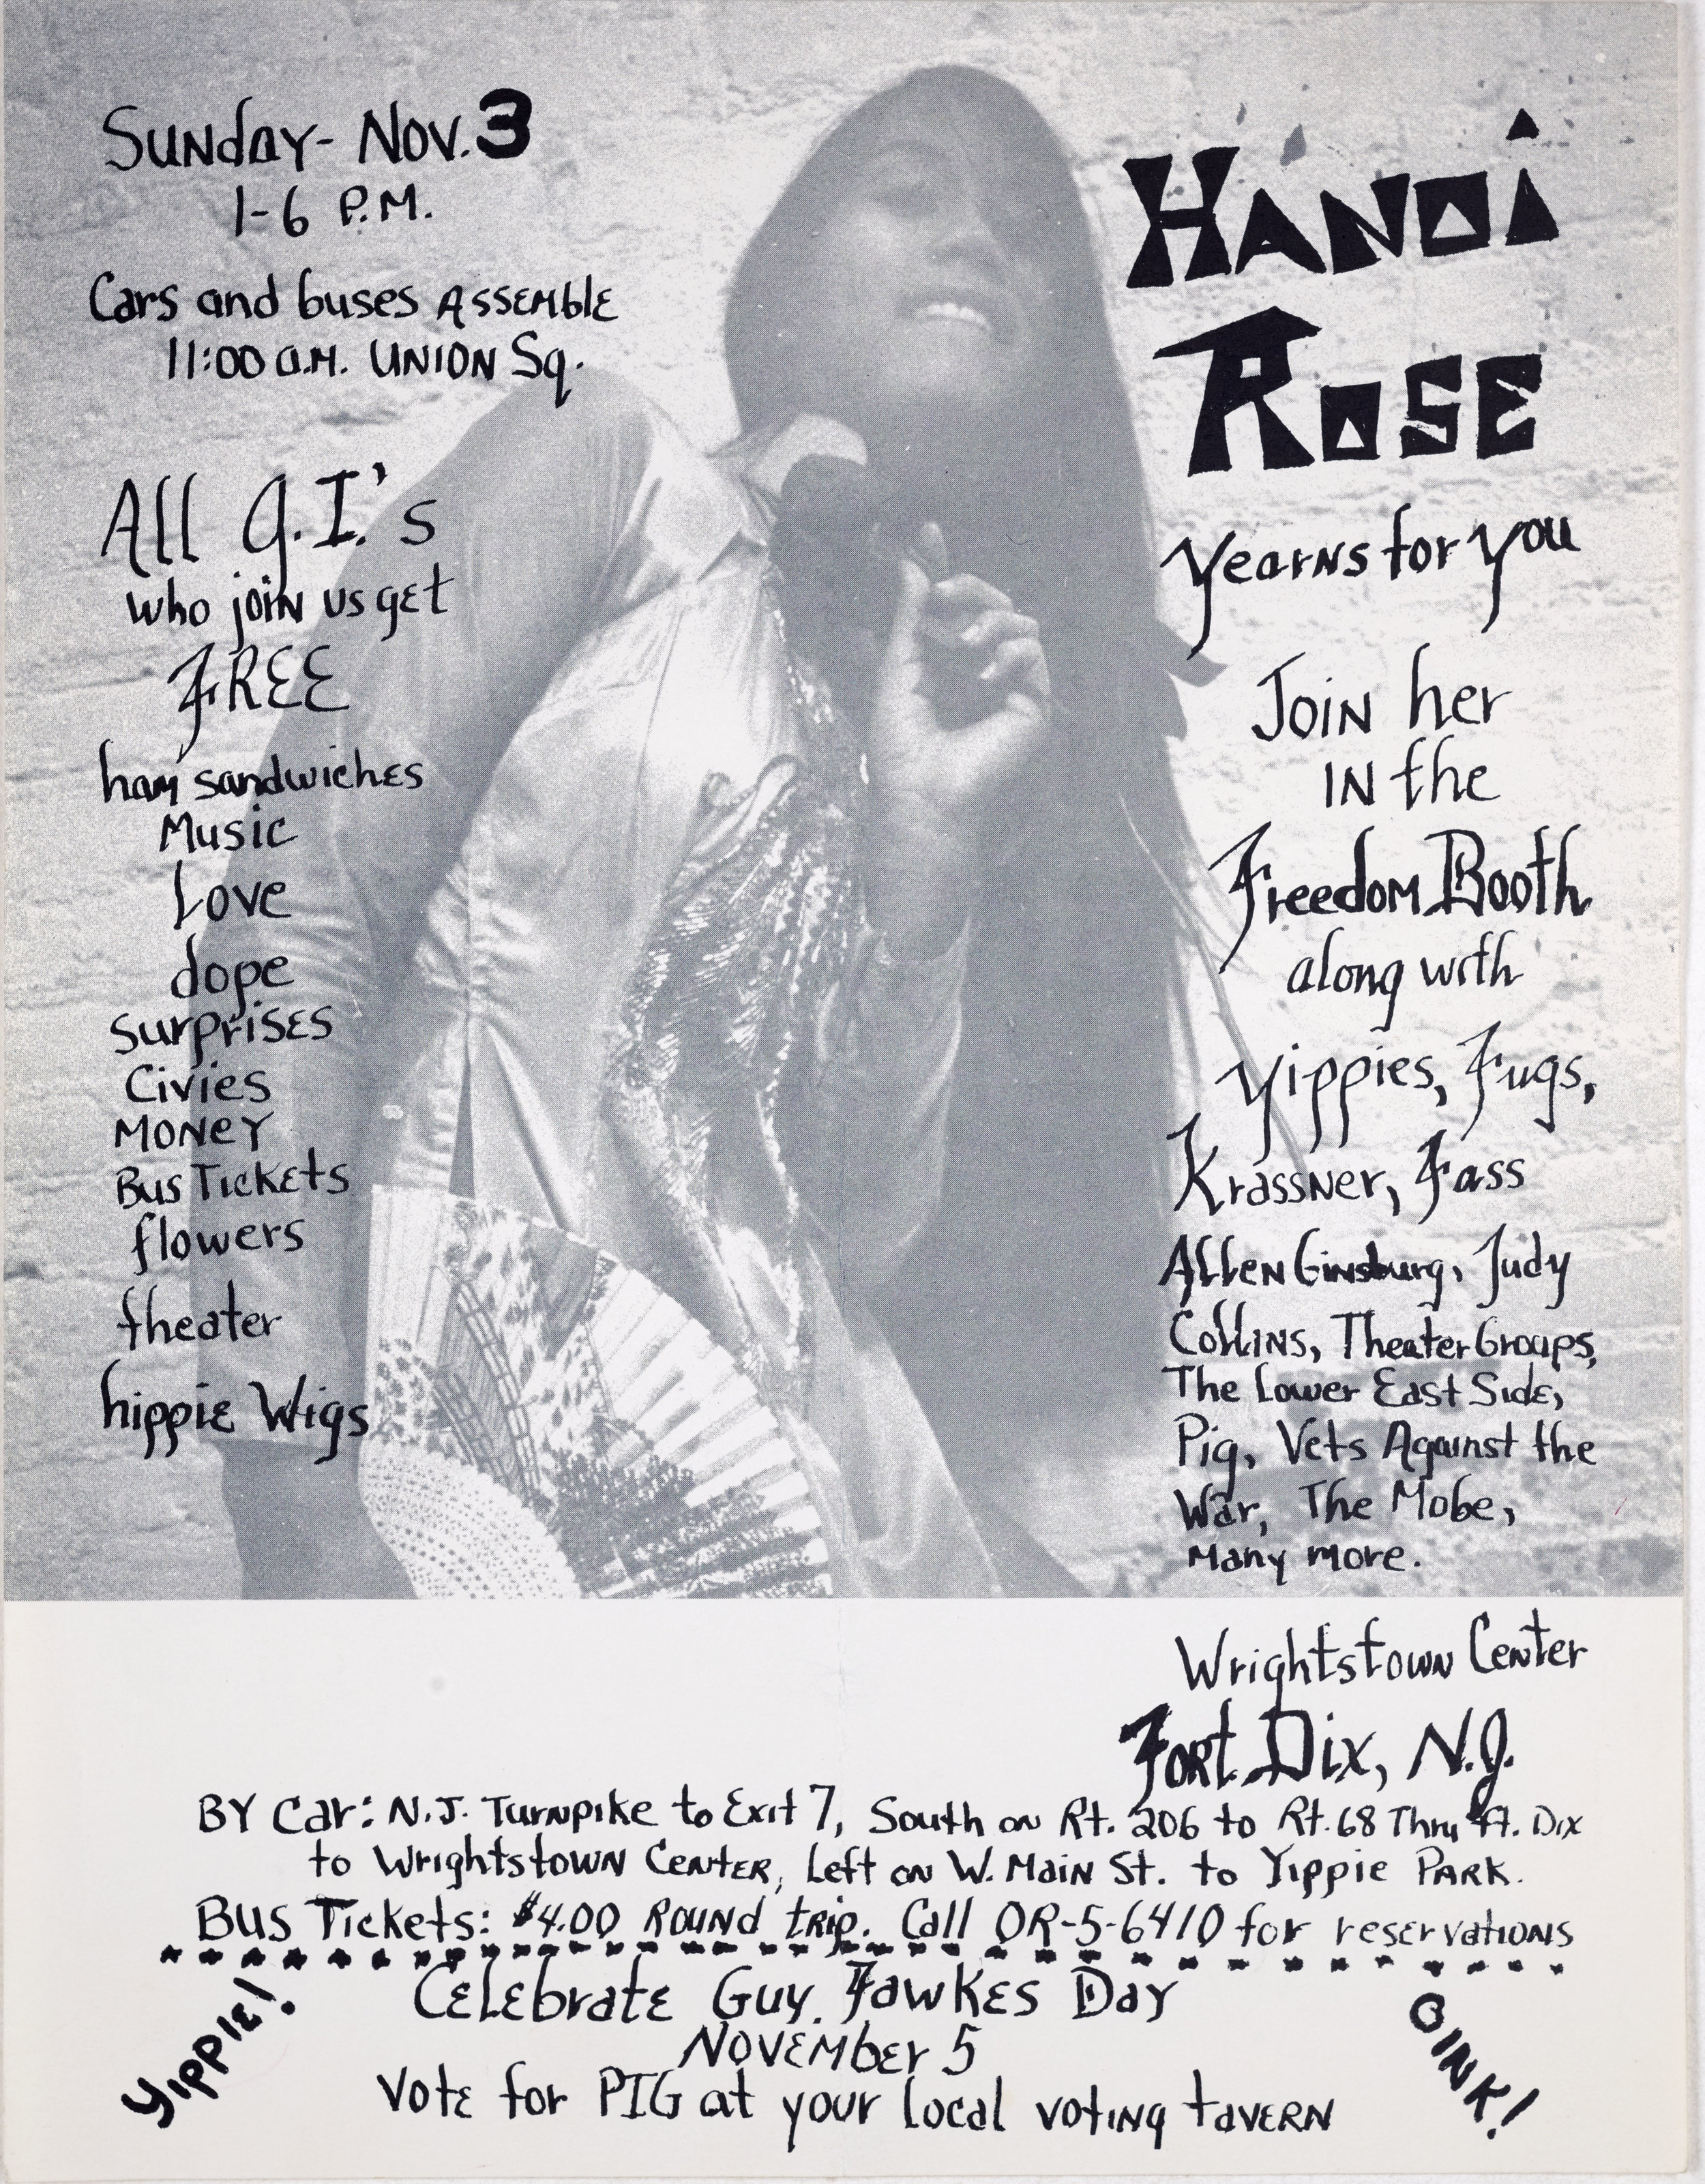 Sunday- Nov. 3
1-6 P.M.
Cars and buses Assemble
11:00 a.m. Union Sq.
All G.I.'s
who join us get
FREE
ham sandwiches
Music
Love
dope
Surprises
Civies
Money
Bus Tickets
flowers
theater
hippie Wigs
HANOI
ROSE
Yearns for you
Join her
IN the
Freedom Booth
along with
Yippies, Fugs,
Krassner, Fass
Allen Ginsburg, Judy
Collins, Theater Groups,
The Lower East Side,
Pig, Vets Against the
War, The Mobe,
Many more.
Wrightstown Center
Fort Dix, N.J.
BY Car: N.J. Turnpike to Exit 7, South on Rt. 206 to Rt. 68 Thru Ft. Dix
to Wrightstown Center, Left on W. Main St. to Yippie Park.
Bus Tickets: $4.00 Round trip. Call OR-5-6410 for reservations
Yippie!
Celebrate Guy Fawkes Day
November 5
Vote for PIG at your local voting tavern
OINK!